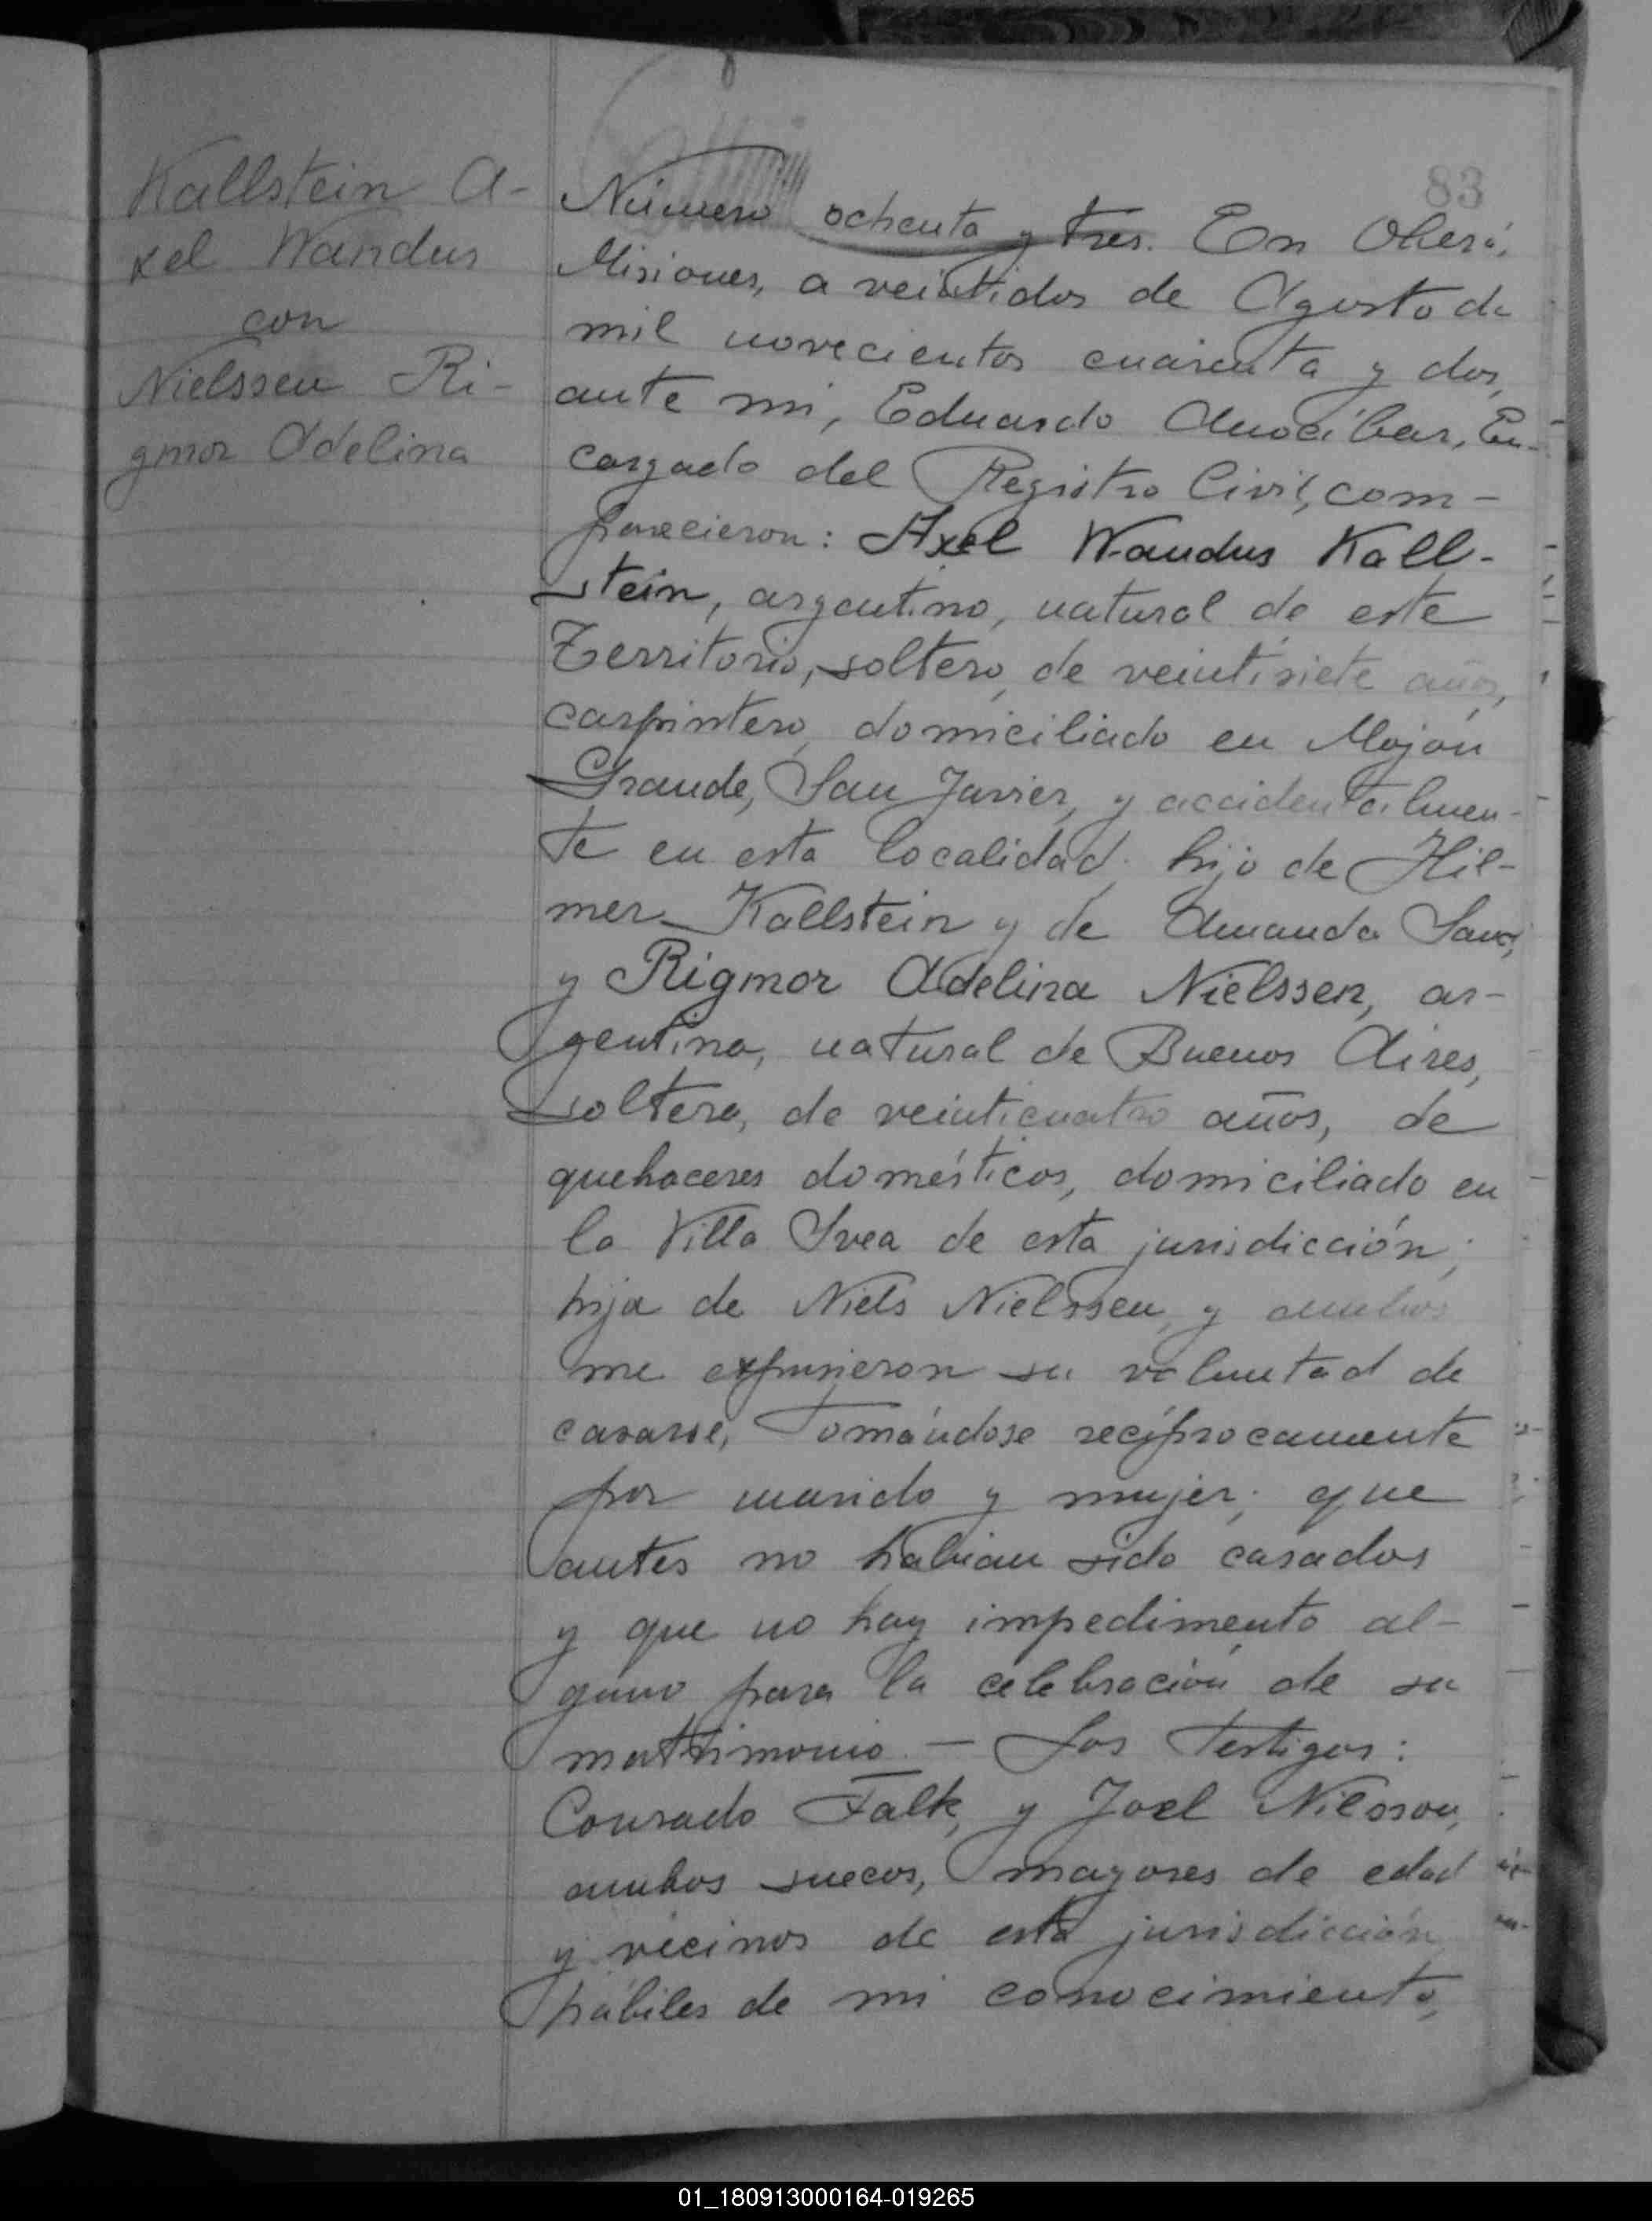 83
Kallstein A-
xel Wandus
con
Nielssen Ri-
gmor Adelina
Número ochenta y tres. En Oberá,
Misiones, a veintidos de Agosto de
mil novecientos cuarenta y dos,
ante mi, Eduardo Anocíbar, En-
cargado del Registro Civil, com-
parecieron: Axel Wandus Kall-
stein, argentino, natural de este
Territorio, soltero, de veintisiete años,
carpintero, domiciliado en Mojón
Grande, San Javier, y accidentalmen-
te en esta localidad, hijo de Hil-
mer Kallstein y de Amanda
y Rigmor Adelina Nielssen, ar-
gentina, natural de Buenos Aires,
soltera, de veinticuatro años, de
quehaceres domésticos, domiciliado en
la Villa Svea de esta jurisdicción;
hija de Niels Nielssen, y ambos
me expusieron su voluntad de
casarse, tomándose recíprocamente
por marido y mujer; que
antes no habian sido casados
y que no hay impedimento al-
guno para la celebración de su
matrimonio. — Los Testigos:
Conrado Falk, y Joel Nilsson,
ambos suecos, mayores de edad
y vecinos de esta jurisdicción,
hábiles de mi conocimiento,
01_180913000164-019265